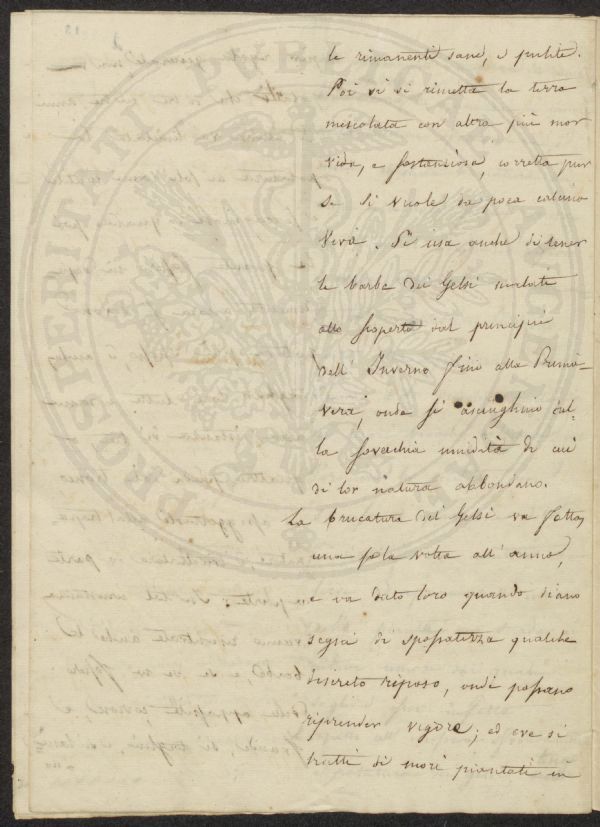 le rimanenti sane, e pulite.
Poi vi si rimetta la terra
mescolata con altra più mor
vida, e sostanziosa, corretta pur
se si vuole da poca calcina
Viva. Si usa anche di tener
le barbe dei Gelsi malati
allo scoperto dal principio
dell' Inverno fino alla Prima-
vera, onde si asciughino dal-
la soverchia umidità di cui
di lor natura abbondano.
La brucatura dei Gelsi va fatta
una sola volta all' anno,
e va dato loro quando diano
segni di spossatezza qualche
discreto riposo, onde possano
riprender vigore; ed ove si
tratti di mori piantati in